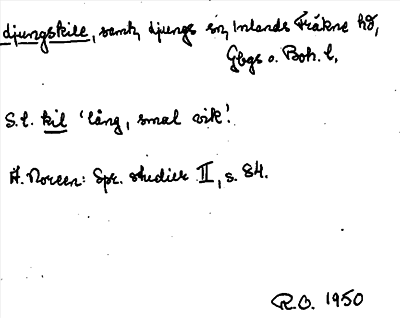 djungskile, samh, djungs sn, Inlands Fräkne hd,
Gbgs o. Boh. l.
S.l. kil 'lång, smal vik'.
A. Noreen: Spr. studier II, s. 84.
R.O. 1950